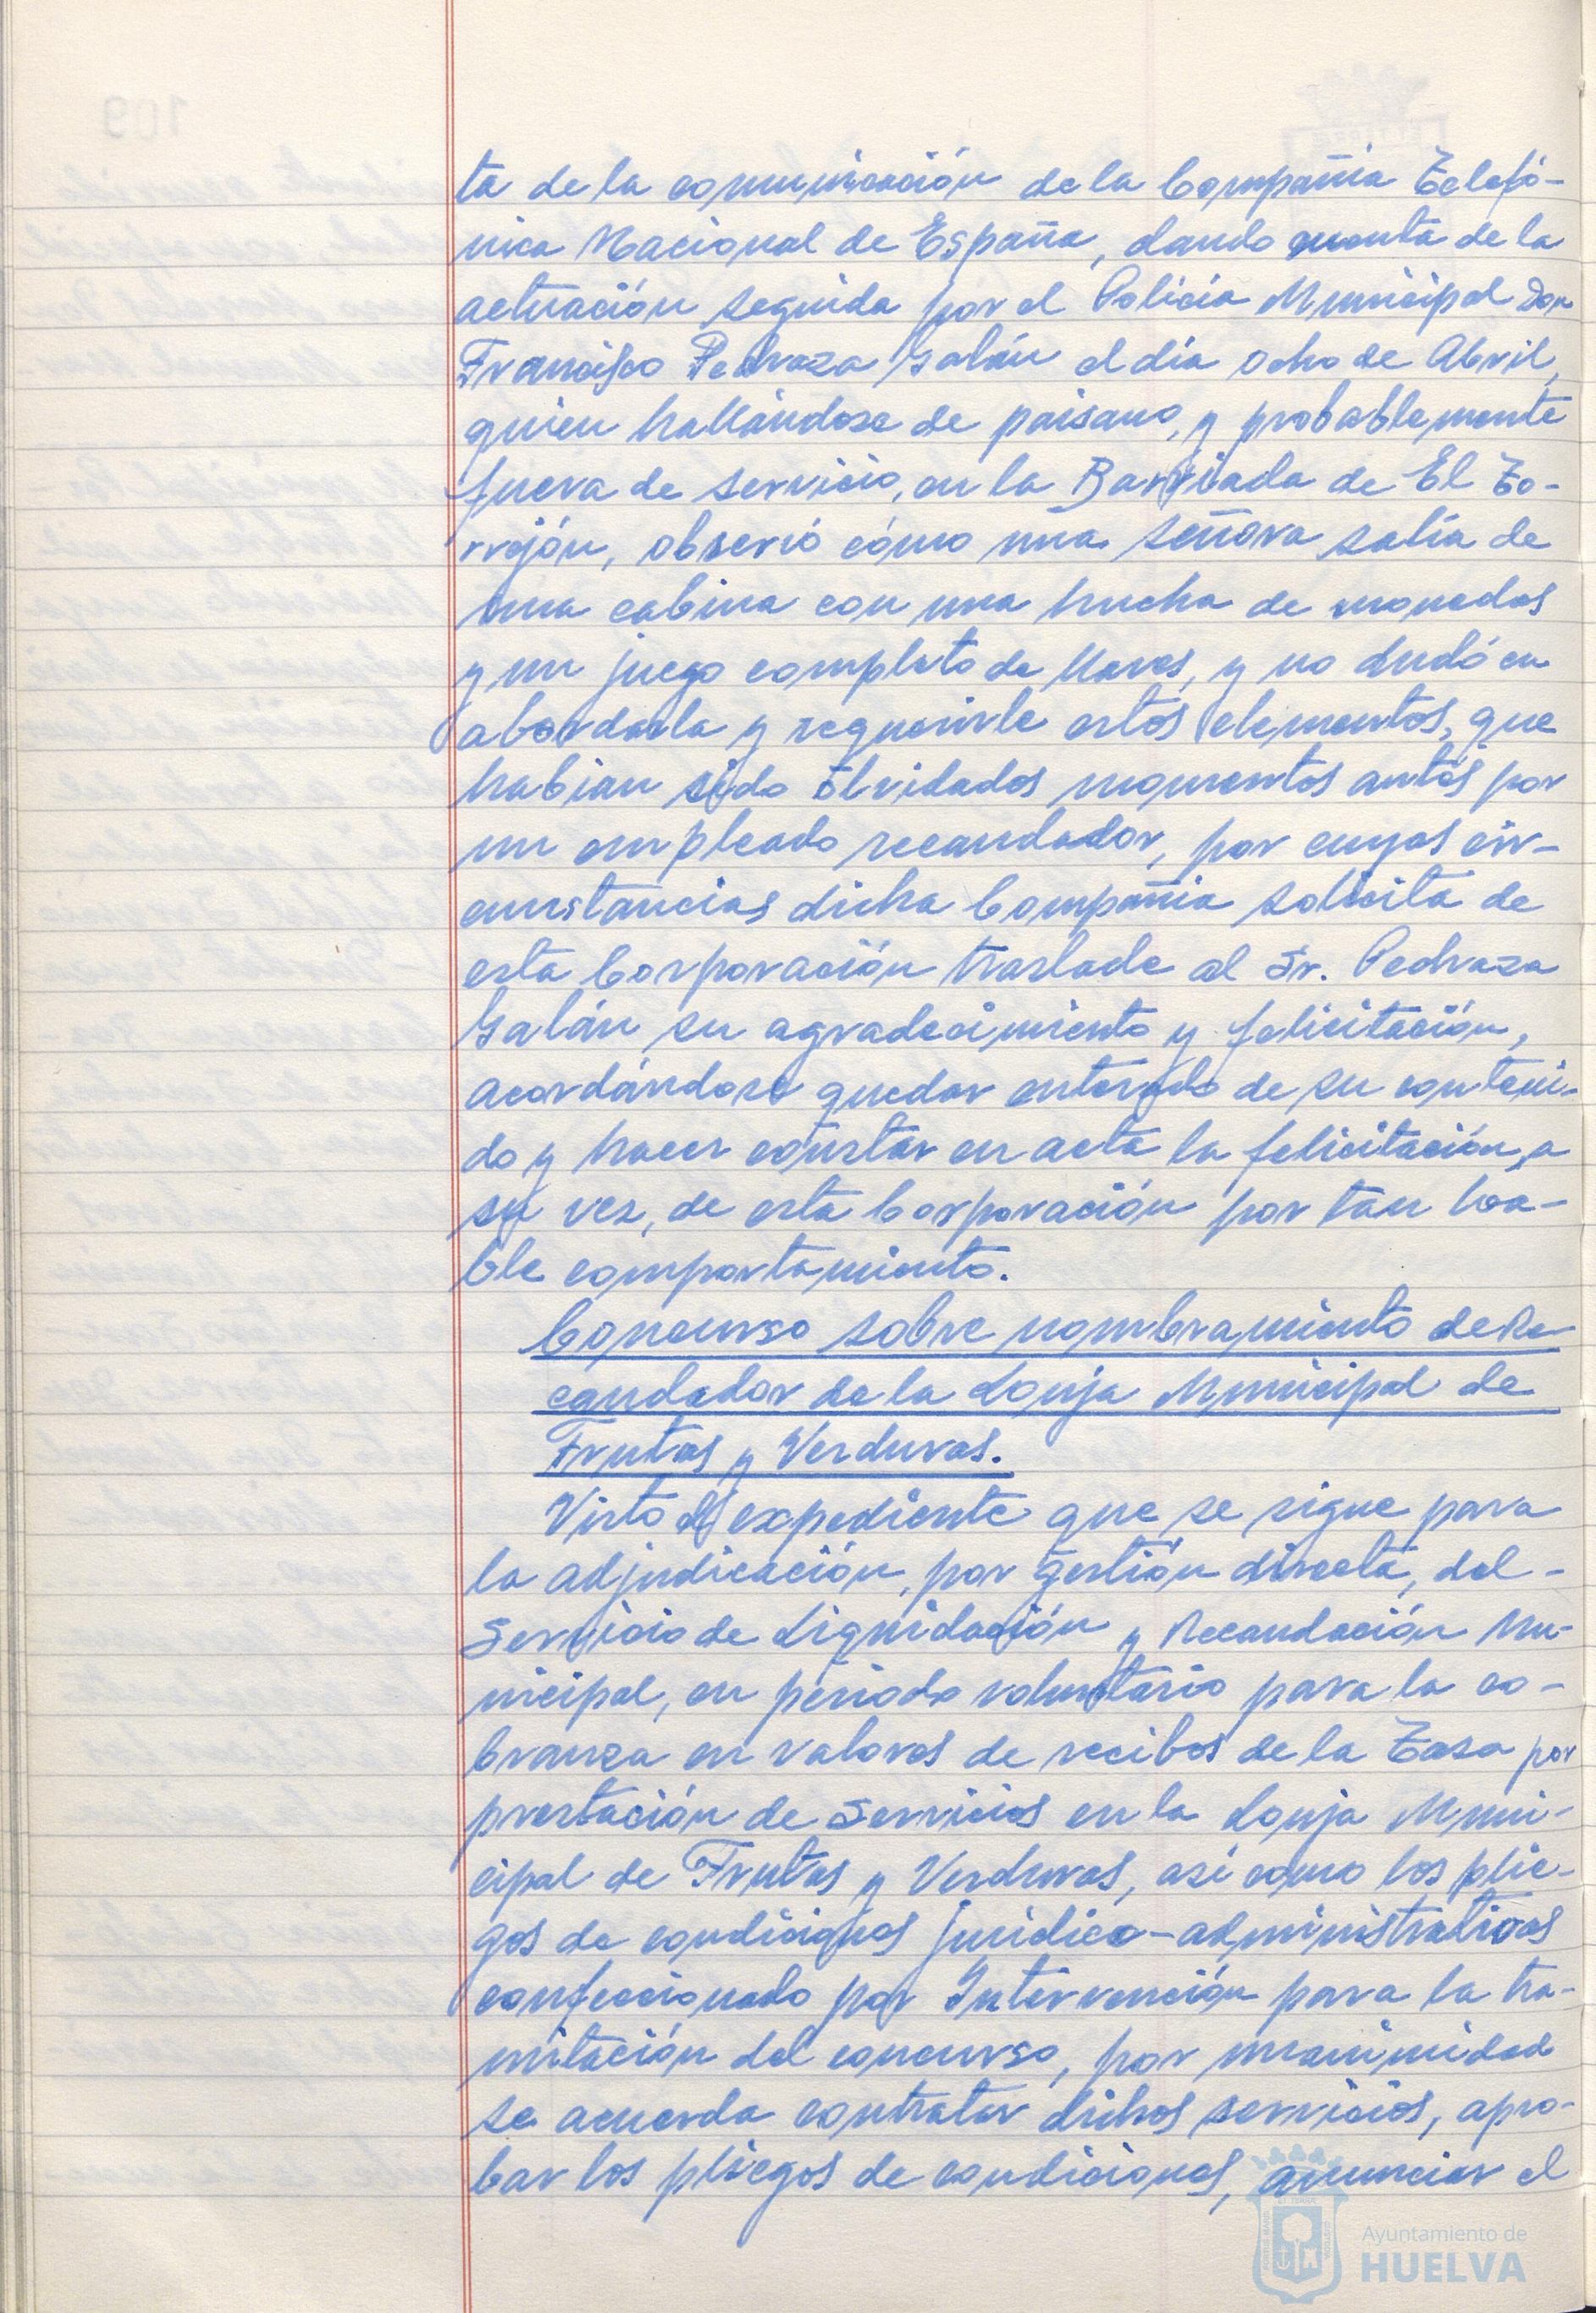 ta de la comunicación de la Compañía Telefó-
nica Nacional de España, dando cuenta de la
actuación seguida por el Policía Municipal Don
Francisco Pedraza Galán el día ocho de Abril,
quien hallándose de paisano, y probablemente
fuera de servicio, en la Barriada de El To-
rrejón, observó cómo una señora salía de
una cabina con una hucha de monedas
y un juego completo de llaves, y no dudó en
abordarla y requerirle estos elementos, que
habian sido olvidados momentos antes por
un empleado recaudador, por cuyas cir-
cunstancias dicha Compañía solicita de
esta Corporación traslade al Sr. Pedraza
Galán su agradecimiento y felicitación,
acordándose quedar enterado de su conteni-
do y hacer constar en acta la felicitación, a
su vez, de esta Corporación por tan loa-
ble comportamiento.
Concurso sobre nombramiento de Re-
caudador de la Lonja Municipal de
Frutas y Verduras.
Visto el expediente que se sigue para
la adjudicación, por gestión directa, del-
Servicio de Liquidación y Recaudación Mu-
nicipal, en periodo voluntario para la co-
branza en valores de recibos de la Tasa por
prestación de Servicios en la Lonja Muni-
cipal de Frutas y Verduras, así como los plie-
gos de condiciones jurídico-administrativas
confeccionado por Intervención para la tra-
mitación del concurso, por unanimidad
se acuerda contratar dichos servicios, apro-
bar los pliegos de condiciones, anunciar el
Ayuntamiento de
HUELVA